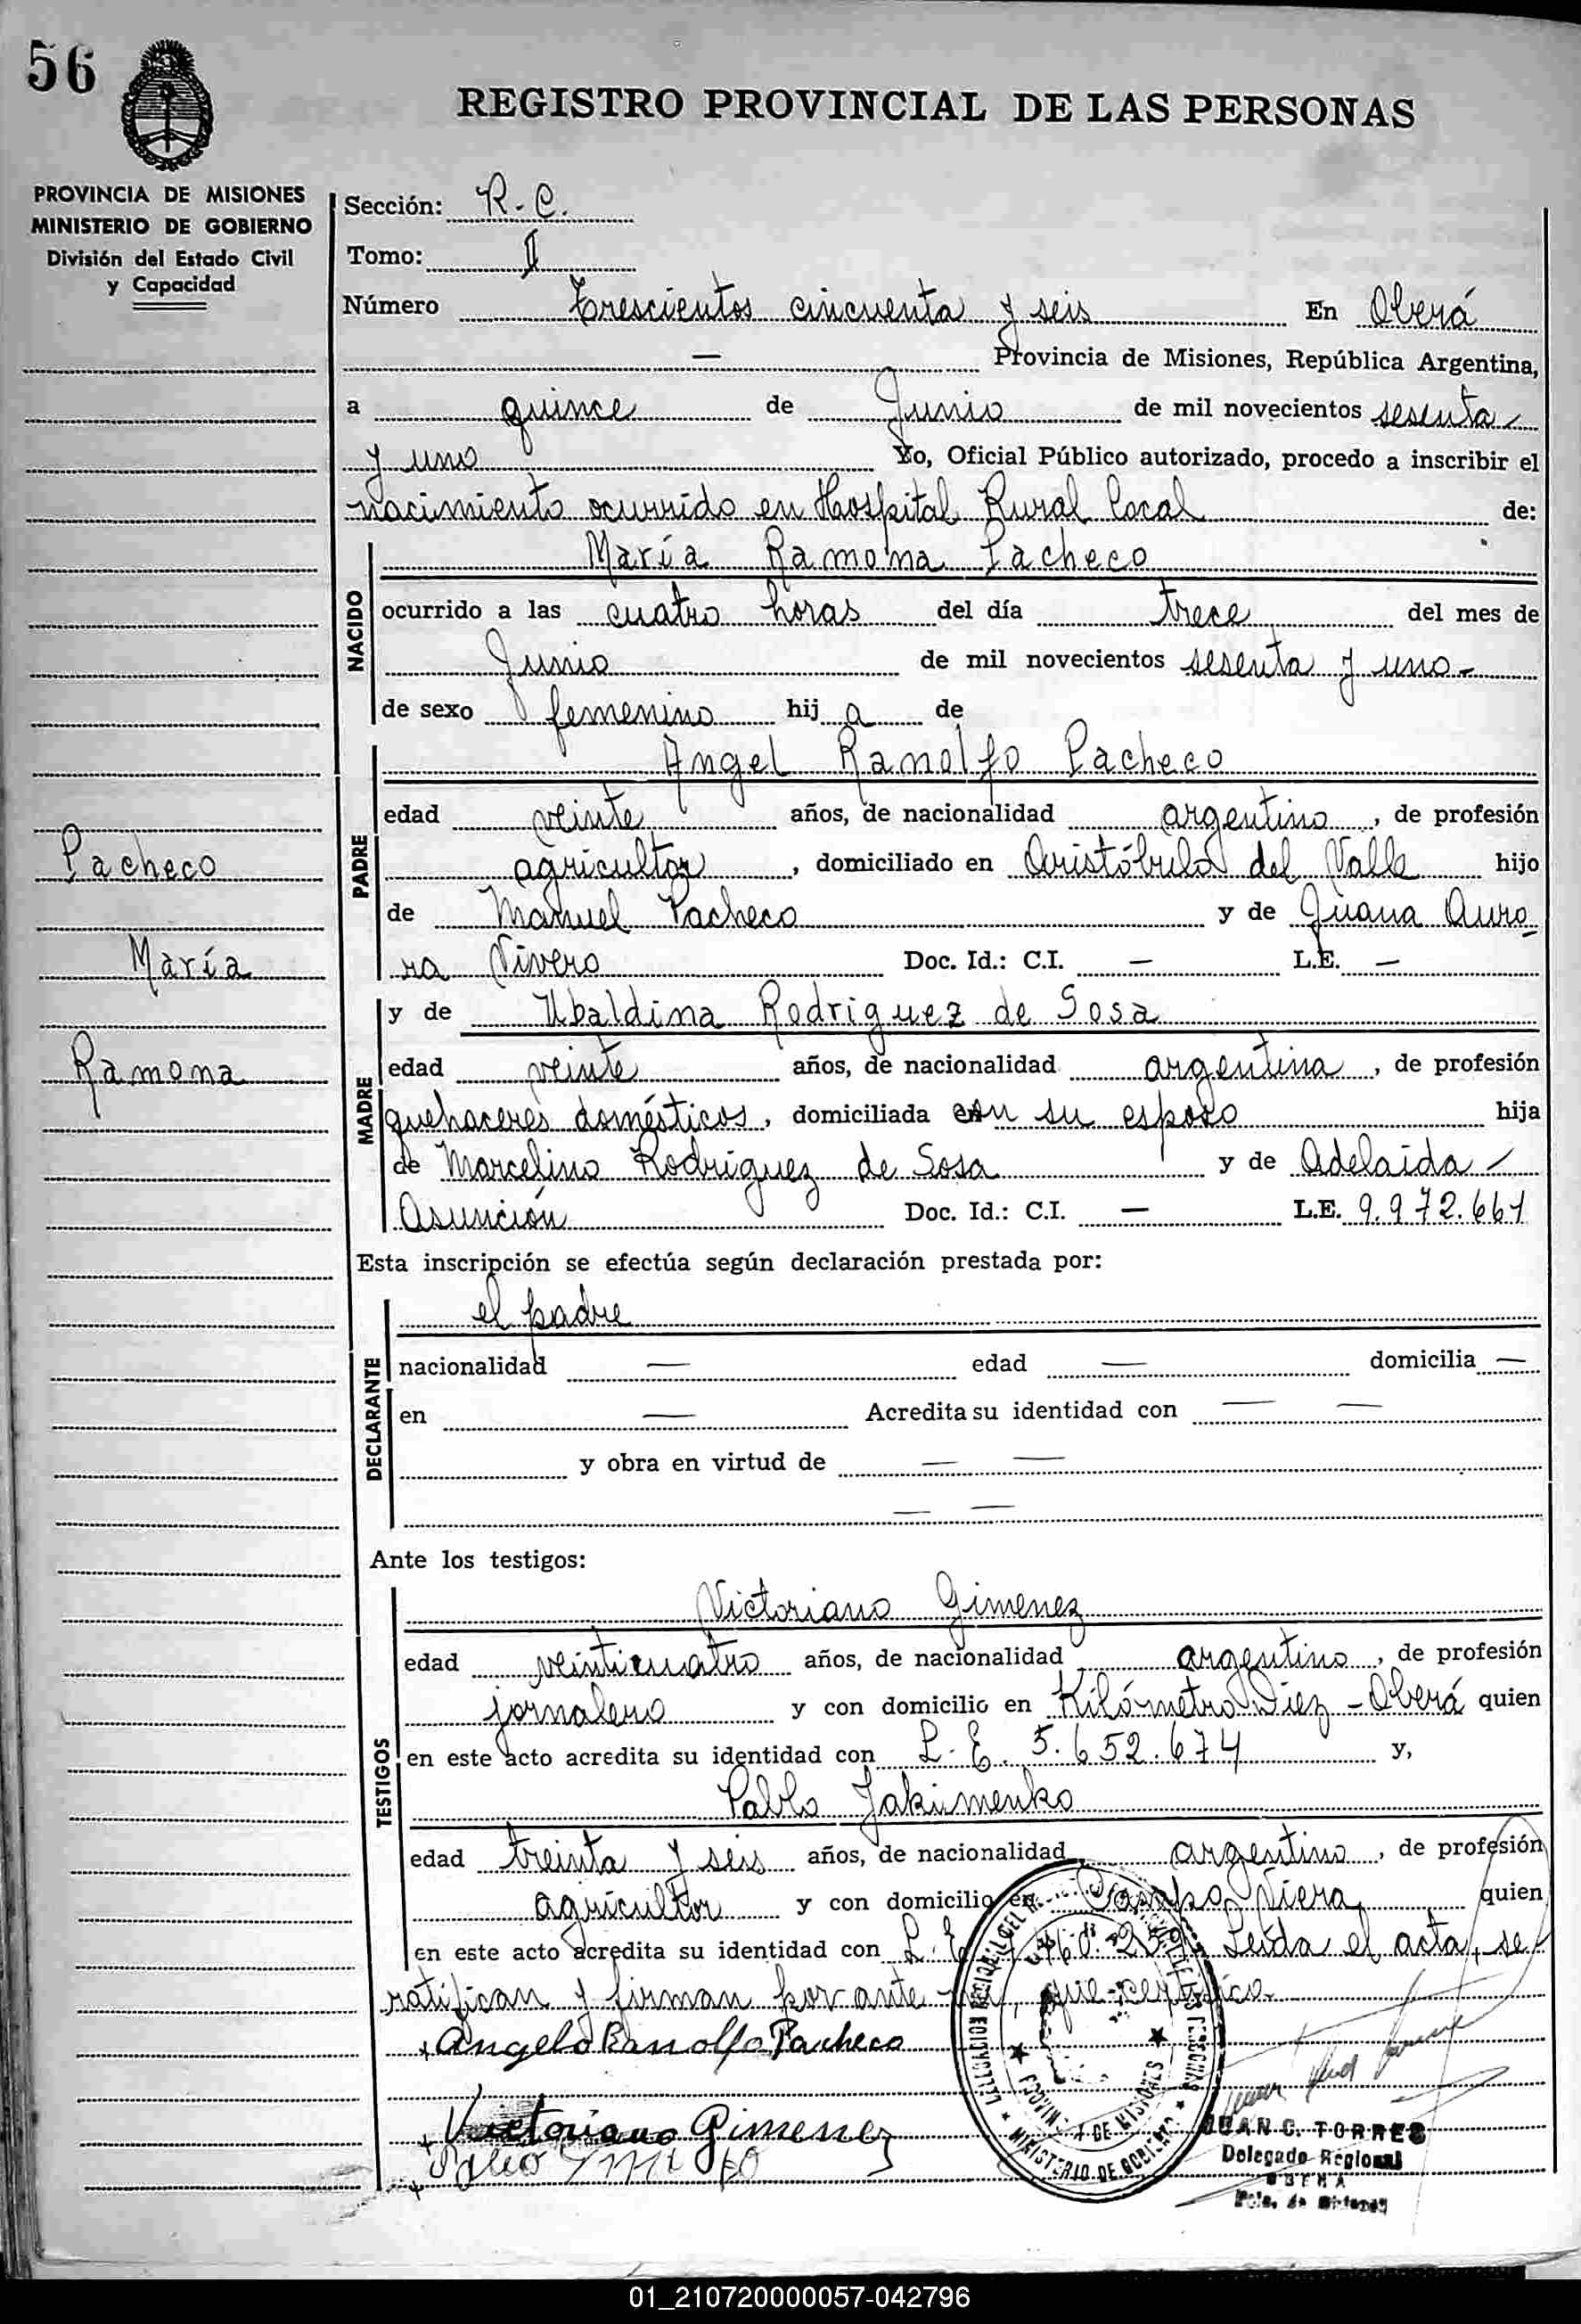 56
REGISTRO PROVINCIAL DE LAS PERSONAS
PROVINCIA DE MISIONES
MINISTERIO DE GOBIERNO
División del Estado Civil
y Capacidad
Sección: R.C.
Tomo: II
Número Trescientos cincuenta y seis En Oberá
— Provincia de Misiones, República Argentina,
a quince de Junio de mil novecientos sesenta
y uno Yo, Oficial Público autorizado, procedo a inscribir el
nacimiento ocurrido en Hospital Rural Local de:
NACIDO
María Ramona Pacheco
ocurrido a las cuatro horas del día trece del mes de
Junio de mil novecientos sesenta y uno-
de sexo femenino hija de
PADRE
Angel Ranolfo Pacheco
edad veinte años, de nacionalidad argentino, de profesión
agricultor, domiciliado en Aristóbulo del Valle hijo
de Manuel Pacheco y de Juana Auro-
ra Vivero Doc. Id.: C.I. — L.E. —
Pacheco
María
Ramona
MADRE
y de Ubaldina Rodriguez de Sosa
edad veinte años, de nacionalidad argentina, de profesión
quehaceres domésticos, domiciliada con su esposo hija
de Marcelino Rodriguez de Sosa y de Adelaida
Asunción Doc. Id.: C.I. — L.E. 9.972.661
Esta inscripción se efectúa según declaración prestada por:
DECLARANTE
el padre
nacionalidad — edad — domicilia —
en — Acredita su identidad con — —
y obra en virtud de — —
— —
Ante los testigos:
TESTIGOS
Victoriano Gimenez
edad veinticuatro años, de nacionalidad argentino, de profesión
jornalero y con domicilio en Kilómetro Diez - Oberá quien
en este acto acredita su identidad con L.E. 5.652.674 y,
Pablo Jakimenko
edad treinta y seis años, de nacionalidad argentino, de profesión
agricultor y con domicilio en Campo Viera quien
en este acto acredita su identidad con L.E. Leida el acta, se
ratifican y firman por ante mí, que certifico.
Angelo Ranolfo Pacheco
Victoriano Gimenez
PROVINCIA DE MISIONES
MINISTERIO DE GOBIERNO
JUAN C. TORRES
Delegado Regional
OBERA
Pcia. de Misiones
01_210720000057-042796